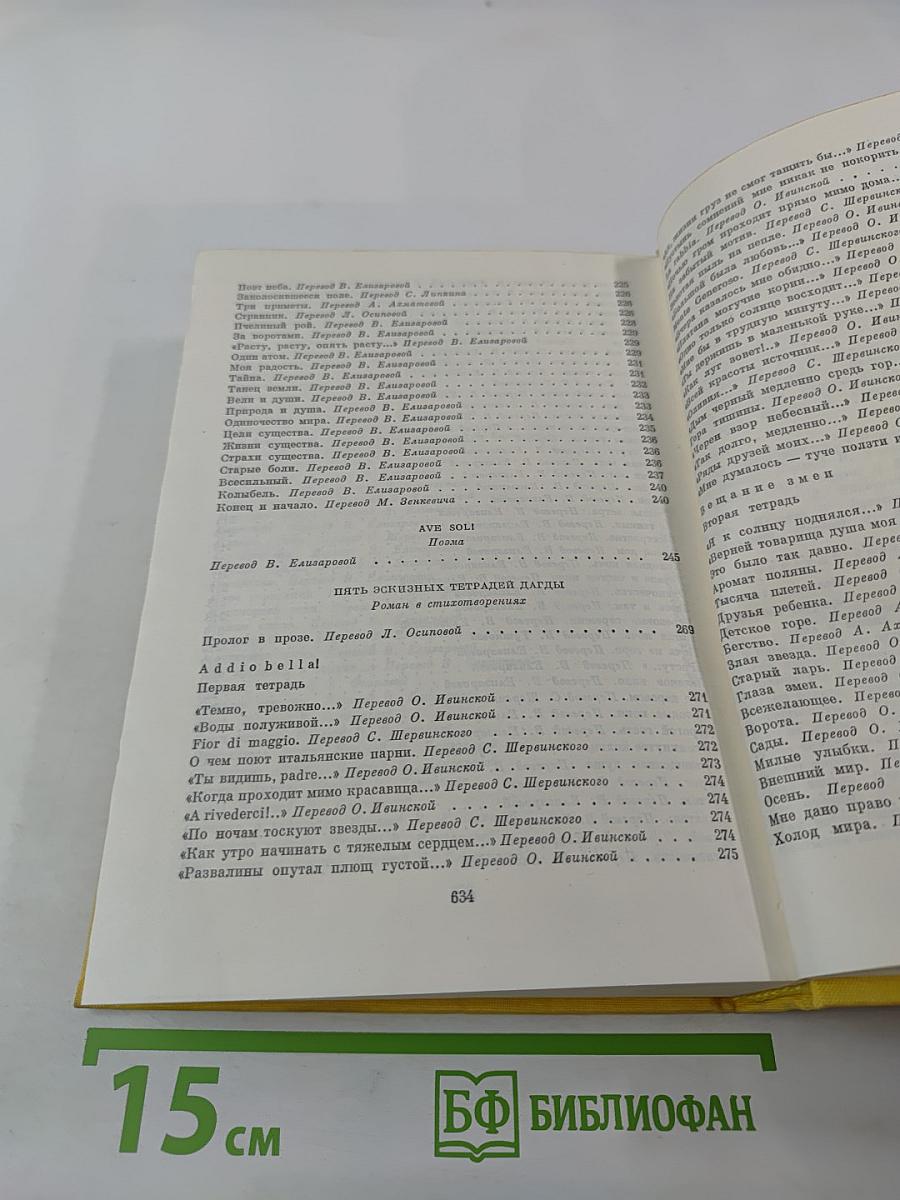 Поэт неба. Перевод В. Елизаровой . . . . . . . . . . . . . 225
Заколосившееся поле. Перевод С. Липкина . . . . . . . . . . 226
Три приметы. Перевод А. Ахматовой . . . . . . . . . . . . . 226
Странник. Перевод Л. Осиповой . . . . . . . . . . . . . . . 226
Пчелиный рой. Перевод В. Елизаровой . . . . . . . . . . . . 228
За воротами. Перевод В. Елизаровой . . . . . . . . . . . . 229
«Расту, расту, опять расту...» Перевод В. Елизаровой 229
Один атом. Перевод В. Елизаровой . . . . . . . . . . . . . 229
Моя радость. Перевод В. Елизаровой . . . . . . . . . . . . 231
Тайна. Перевод В. Елизаровой . . . . . . . . . . . . . . . 231
Танец земли. Перевод В. Елизаровой . . . . . . . . . . . . 232
Вели и души. Перевод В. Елизаровой . . . . . . . . . . . . 233
Природа и душа. Перевод В. Елизаровой . . . . . . . . . . . 233
Одиночество мира. Перевод В. Елизаровой . . . . . . . . . . 234
Цели существа. Перевод В. Елизаровой . . . . . . . . . . . 235
Жизни существа. Перевод В. Елизаровой . . . . . . . . . . . 236
Страхи существа. Перевод В. Елизаровой . . . . . . . . . . 236
Старые боли. Перевод В. Елизаровой . . . . . . . . . . . . 236
Всесильный. Перевод В. Елизаровой . . . . . . . . . . . . . 237
Колыбель. Перевод В. Елизаровой . . . . . . . . . . . . . . 240
Конец и начало. Перевод М. Зенкевича . . . . . . . . . . . 240
AVE SOL!
Поэма
Перевод В. Елизаровой . . . . . . . . . . . . . . . . . . . 245
ПЯТЬ ЭСКИЗНЫХ ТЕТРАДЕЙ ДАГДЫ
Роман в стихотворениях
Пролог в прозе. Перевод Л. Осиповой . . . . . . . . . . . . 269
Addio bella!
Первая тетрадь
«Темно, тревожно...» Перевод О. Ивинской . . . . . . . . . 271
«Воды полуживой...» Перевод О. Ивинской . . . . . . . . . . 271
Fior di maggio. Перевод С. Шервинского . . . . . . . . . . 272
О чем поют итальянские парни. Перевод С. Шервинского . . . . 272
«Ты видишь, padre...» Перевод О. Ивинской . . . . . . . . . 273
«Когда проходит мимо красавица...» Перевод С. Шервинского . . . . 274
«A rivederci!..» Перевод О. Ивинской . . . . . . . . . . . 274
«По ночам тоскуют звезды...» Перевод С. Шервинского . . . . . 274
«Как утро начинать с тяжелым сердцем...» Перевод О. Ивинской . . . 274
«Развалины опутал плющ густой...» Перевод О. Ивинской . . . . . 275
634
жизни груз не смог тащить бы...» Перевод
сомнений мне никак не покорить
rabbia. Перевод О. Ивинской . . . . .
гром проходит прямо мимо дома...
забытый мотив. Перевод С. Шервинс
пыль на пепле. Перевод О. Ивинс
была любовь...» Перевод О. И
Generoso. Перевод С. Шервинского
казалось мне обидно...» Перевод
могучие корни...» Перевод О
только солнце восходит...» Перев
бы в трудную минуту...» Перевод
держишь в маленькой руке...» П
«Как луг зовет!..» Перевод О. Ивин
«Всей красоты источник...» Перевод
«Оливия...» Перевод С. Шервинског
«Дым черный медленно средь гор...
Гора тишины. Перевод О. Ивинско
«Черен взор небесный...» Перев
«Так долго, медленно...» Перевод
«Ряды друзей моих...» Перевод О
«Мне думалось — туче ползти и
Вещание змеи
Вторая тетрадь
«Я к солнцу поднялся...» П
«Верней товарища душа моя
Это было так давно. Перев
Аромат поляны. Перевод
Тысяча плетей. Перевод
Друзья ребенка. Перевод
Детское горе. Перевод А
Бегство. Перевод А. Ах
Злая звезда. Перевод О
Старый ларь. Перевод
Глаза змеи. Перевод С
Всежелающее. Перево
Ворота. Перевод О.
Сады. Перевод О.
Милые улыбки. П
Внешний мир. Пе
Осень. Перевод
Мне дано право
Холод мира. П
15 см
БФ БИБЛИОФАН